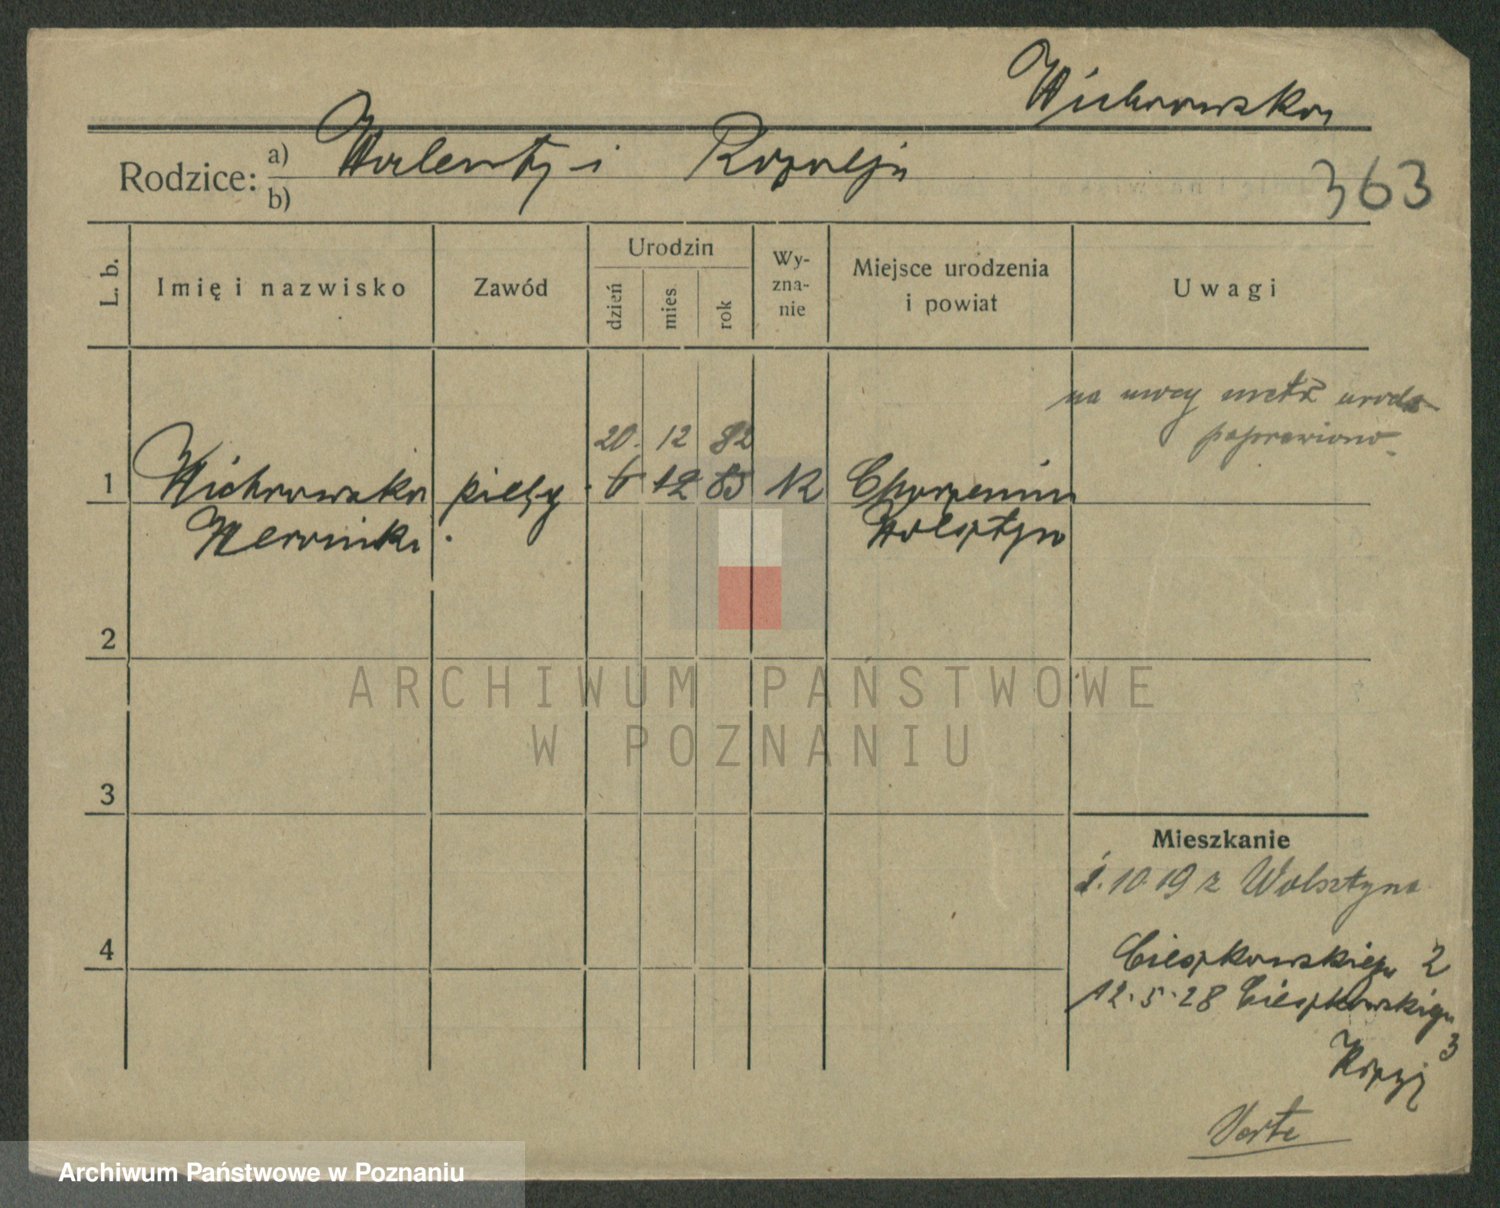 Wichrowska
Rodzice: a) Walenty i Rozalja
b)
363
L. b.
Imię i nazwisko
Zawód
Urodzin
dzień
mies
rok
Wy-
zna-
nie
Miejsce urodzenia
i powiat
Uwagi
na mocy metr urodz
poprawiono
20. 12 82
1 Wichrowska 6 12 83 K Chorzemin
Weronika Wolsztyn
2
3
4
Mieszkanie
1.10 19 z Wolsztyna
Cieszkowskiego 2
12.5.28 Cieszkowskiego
3
Verte
ARCHIWUM PAŃSTWOWE
W POZNANIU
Archiwum Państwowe w Poznaniu